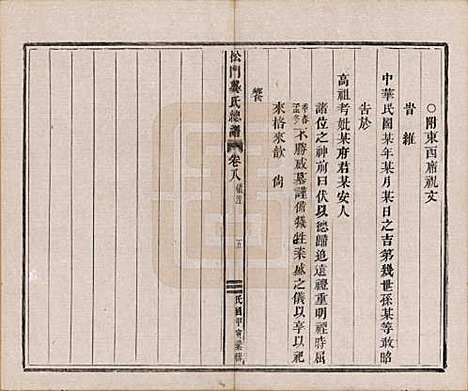 ○附東西廂祝文
旹維
中華民國某年某月某日之吉第幾世孫某等敢昭
告於
高祖考妣某府君某安人
諸位之神前曰伏以德歸追遠禮重明禋時屆
季春
孟冬
不勝感慕謹備牲牷粢盛之儀以辛以祀
來格來歆尙
饗
松門龔氏總譜
卷八
五
民國甲